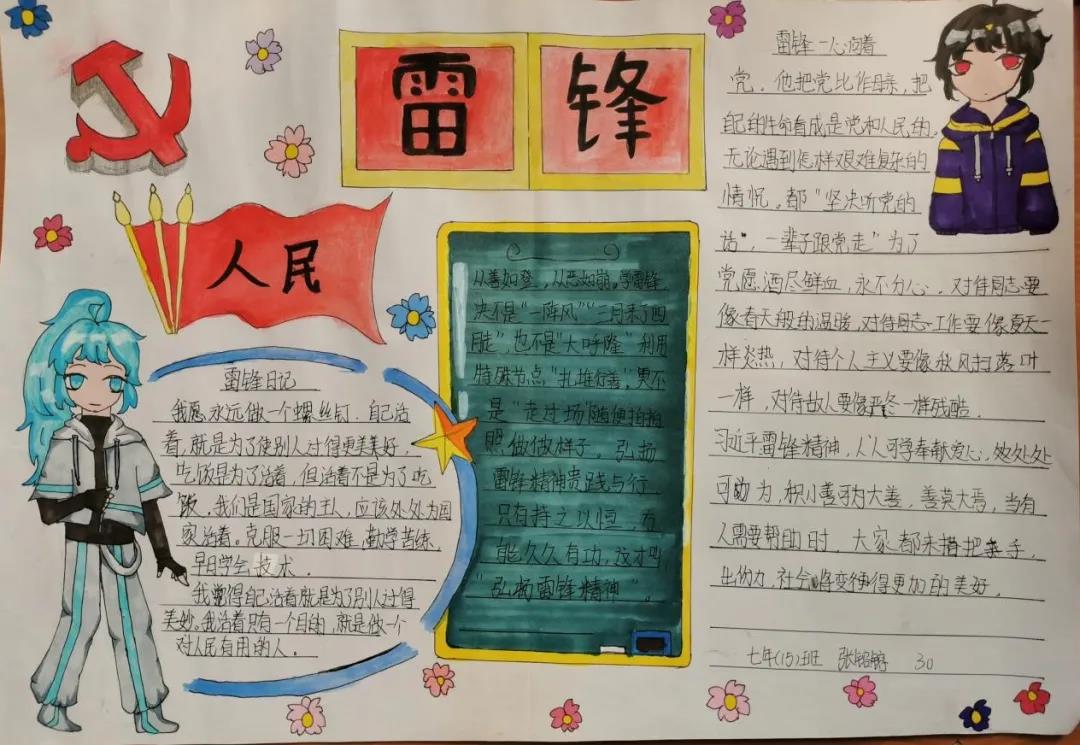 雷锋
人民
雷锋日记
我愿永远做一个螺丝钉．自己活
着，就是为了使别人过得更美好，
吃饭是为了活着，但活着不是为了吃
饭．我们是国家的主人，应该处处为国
家活着．克服一切困难，勤学苦练，
早日学会技术．
我觉得自己活着就是为了别人过得
美妙．我活着只有一个目的，就是做一个
对人民有用的人．
从善如登，从恶如崩，学雷锋
决不是“一阵风”“三月来了四
月走”，也不是“大呼隆”利用
特殊节点“扎堆行善”，更不
是“走过场”随便拍拍
照做做样子，弘扬
雷锋精神贵践与行
只有持之以恒，方
能久久有功，这才叫
“弘扬雷锋精神”。
雷锋一心向着
党．他把党比作母亲，把
自己的性命看成是党和人民的．
无论遇到怎样艰难复杂的
情况，都“坚决听党的
话”，一辈子跟党走”为了
党愿洒尽鲜血，永不分心．对待同志要
像春天般的温暖，对待同志工作要像夏天一
样炎热，对待个人主义要像秋风扫落叶
一样，对待敌人要像严冬一样残酷．
习近平雷锋精神，人人可学奉献爱心，处处处
可为，积小善可为大善，善莫大焉，当有
人需要帮助时，大家都来搭把手，
出份力，社会将变得更加的美好．
七年(15)班 张 30